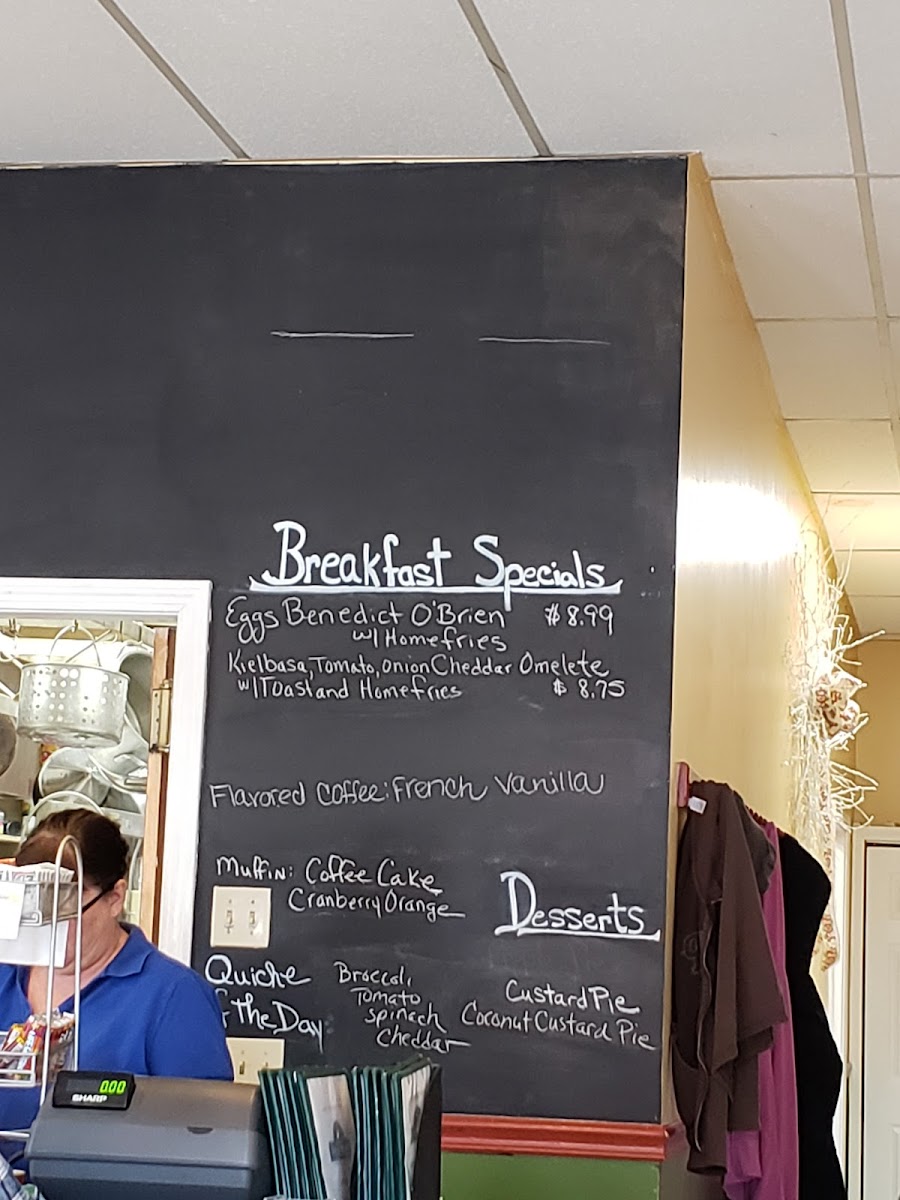 Breakfast Specials
Eggs Benedict O'Brien $8.99
w/ Homefries
Kielbasa, Tomato, Onion Cheddar Omelete
w/ Toast and Homefries $8.75
Flavored Coffee: French Vanilla
Muffin: Coffee Cake
Cranberry Orange
Desserts
Custard Pie
Coconut Custard Pie
Quiche
f The Day:
Broccoli
Tomato
Spinach
Cheddar
0.00
SHARP